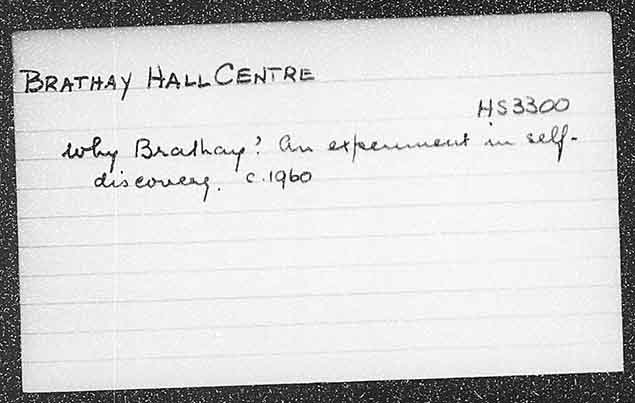 BRATHAY HALL CENTRE
HS3300
Why Brathay? An experiment in self-
discovery. c.1960